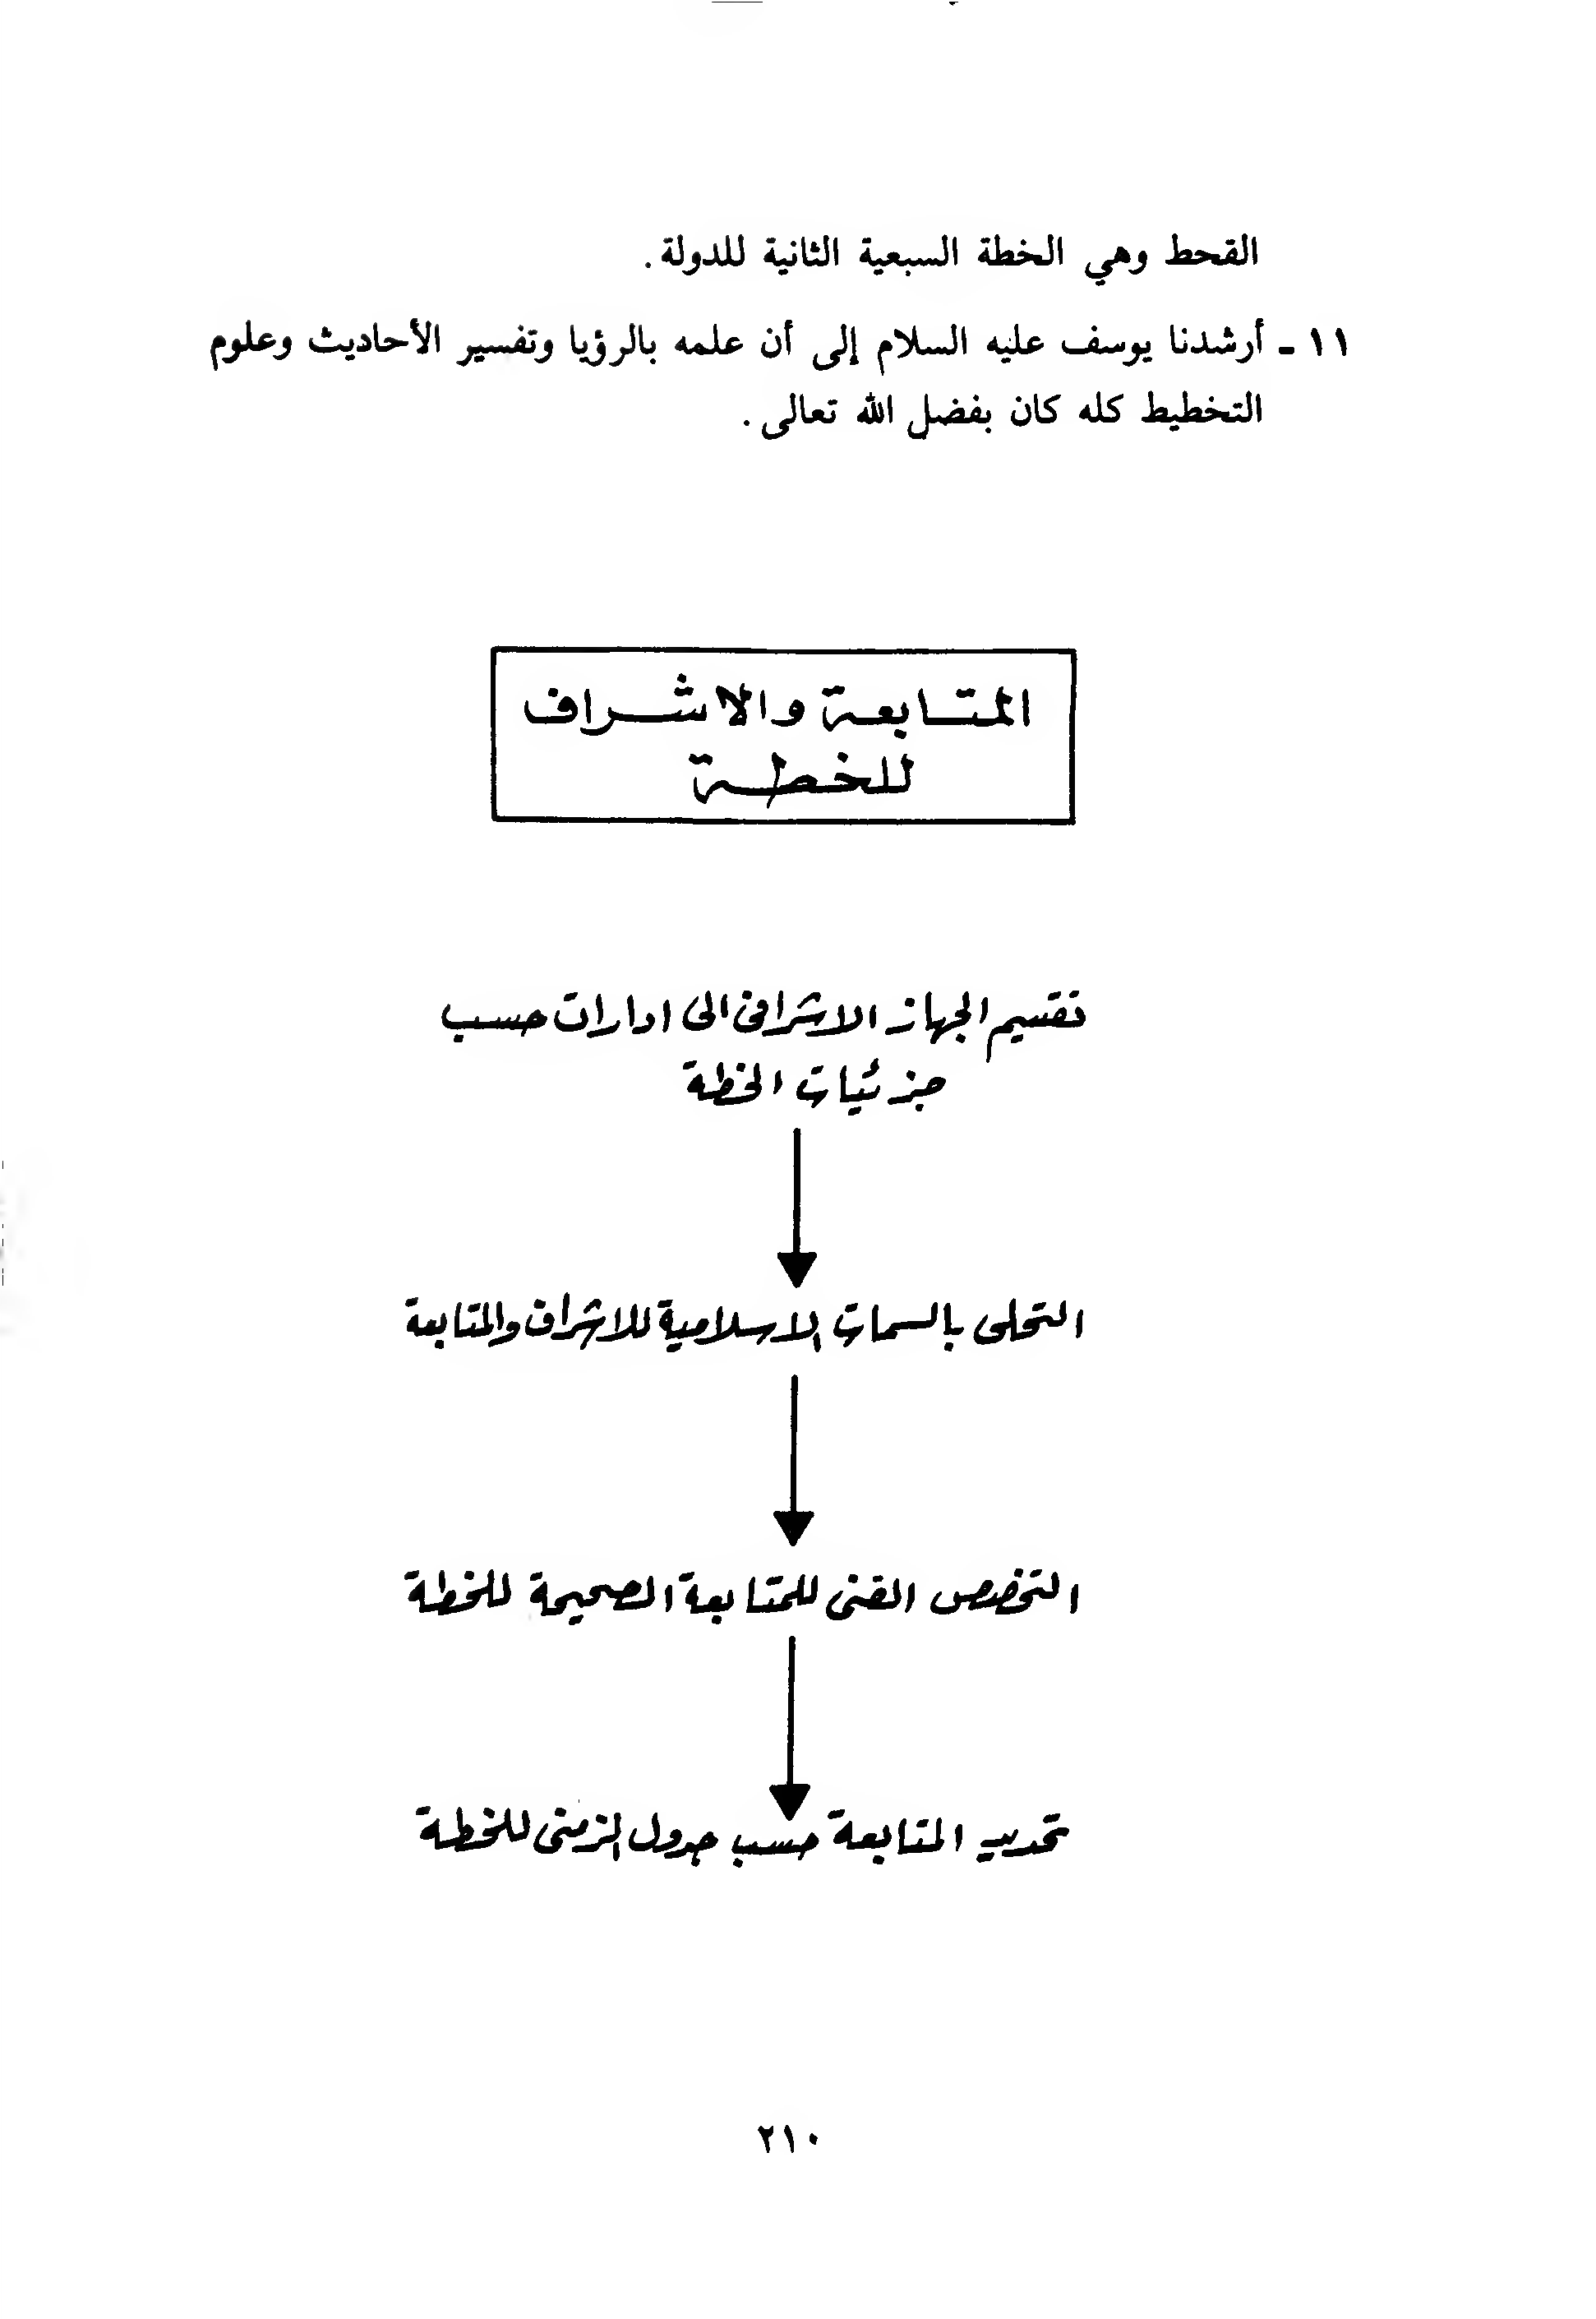 القحط وهي الخطة السبعية الثانية للدولة.
١١ - أرشدنا يوسف عليه السلام إلى أن علمه بالرؤيا وتفسير الأحاديث وعلوم
التخطيط كله كان بفضل الله تعالى.
المتابعة والاشراف
للخطة
تقسيم الجهاز الاشرافى الى ادارات حسب
جزئيات الخطة
التحلى بالسمات الاسلامية للاشراف والمتابعة
التخصص الفنى للمتابعة الصحيحة للخطة
تحديد المتابعة حسب جدول الزمنى للخطة
٢١٠